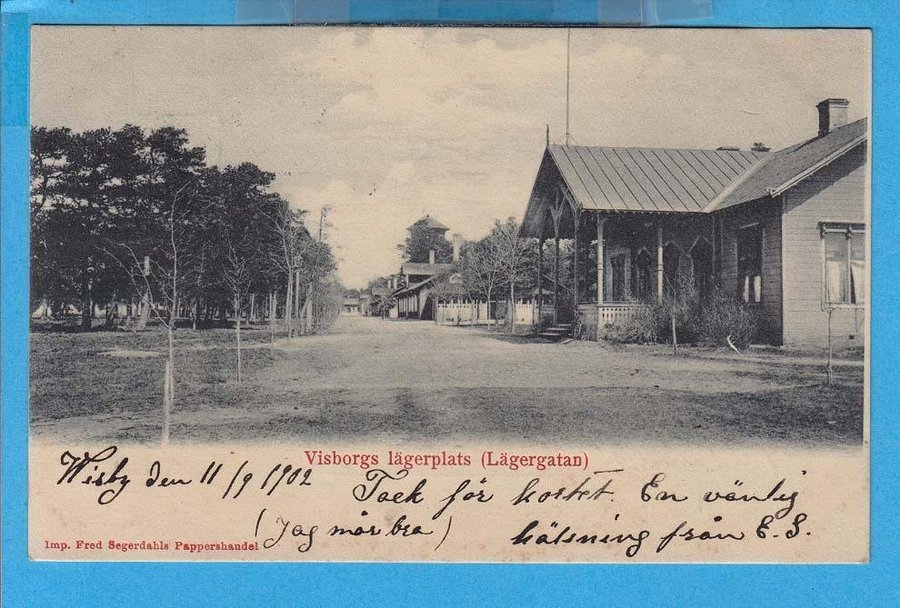 Visborgs lägerplats (Lägergatan)
Wisby den 11/9 1902 Tack för kortet. En vänlig
(Jag mår bra) hälsning från E. S.
Imp. Fred Segerdahls Pappershandel